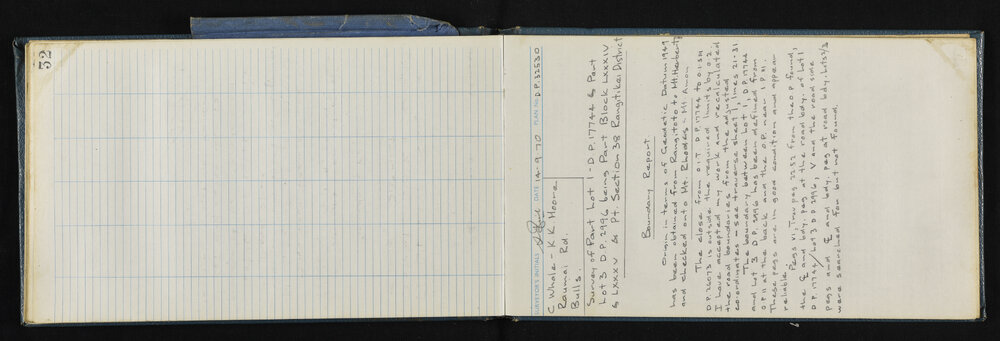 32
SURVEYOR'S INITIALS DATE 14-9-70 PLAN NO. D.P. 32530
C Whale - K K Moore
Raumai Rd.
Bulls.
Survey of Part Lot 1 - D.P. 17744 & Part
Lot 3 D.P. 2996 being Part Block LXXXIV
& LXXXV & Pt. Section 38 Rangitikei District
Boundary Report
Origin in terms of Geodetic Datum 1949
has been obtained from Rangitoto to Mt. Herbert
and checked onto Mt. Rhodes - Mt Amon
The close from O.I.T. D.P. 17744 to O.I.S.A
D.P. 26073 is outside the required limits by 0.2.
I have accepted my work and recalculated
the road boundaries from the adjusted
co-ordinates - see traverse sheet 1, lines 21-31
The boundary between Lot 1, D.P. 17744
and Lot 3 D.P. 2996 has been defined from
O.P. II at the back and the O.P. near I.P. XI.
These pegs are in good condition and appear
reliable.
Pegs VI, Trav peg 22.52 from the O.P. found,
the ℄ and bdy. peg at the road bdy. of Lot 1
D.P. 17744/Lot 3 D.P. 2996, V and the road side
pegs and ℄ and bdy. peg at road bdy, Lots 2/3
were searched for but not found.